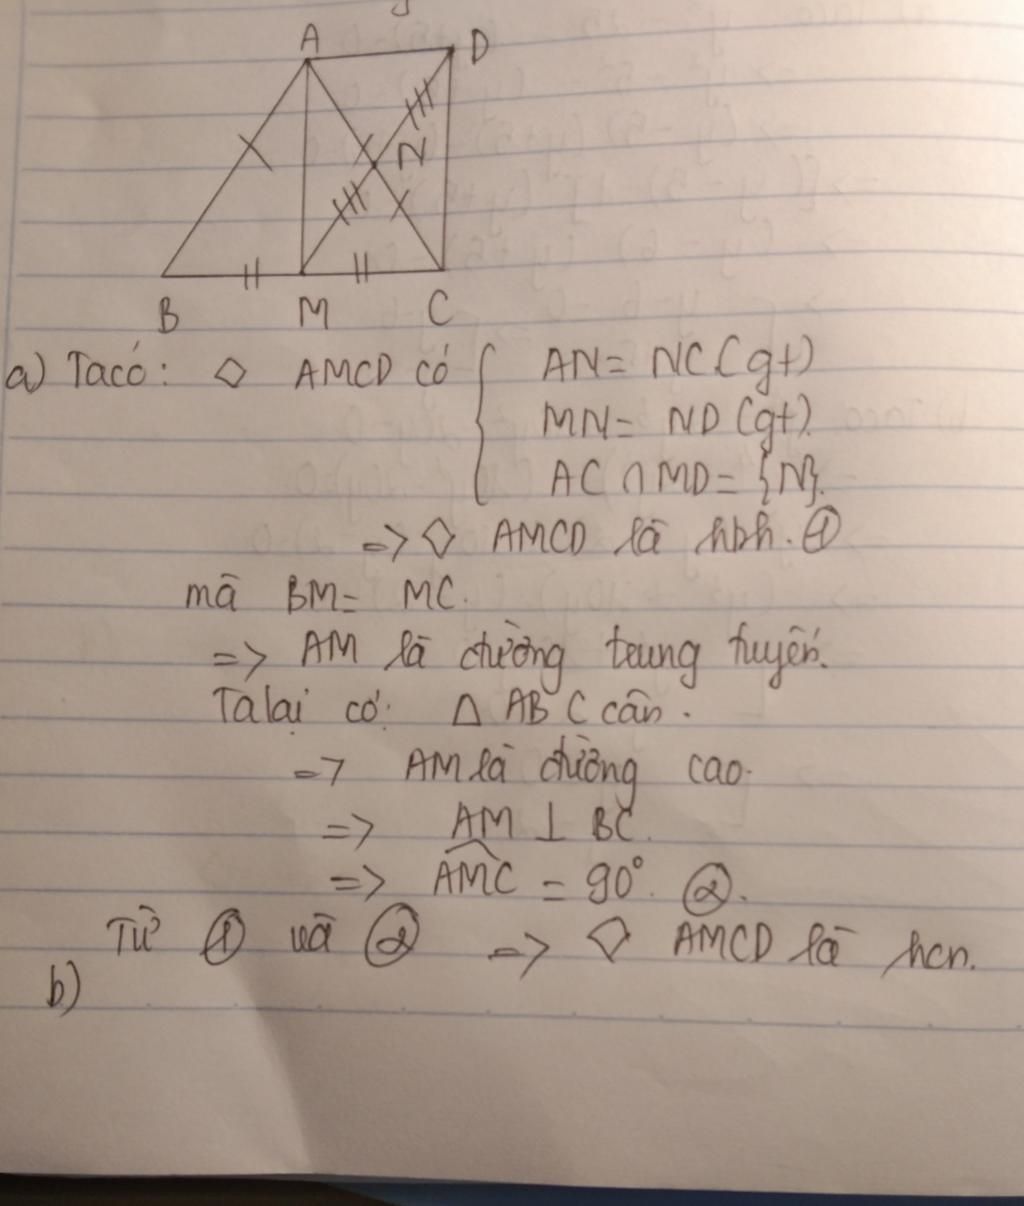 A D
N
B M C
a) Ta có: ◇ AMCD có { AN = NC (gt)
MN = ND (gt).
AC ∩ MD = {N}.
=> ◇ AMCD là hbh. ①
mà BM = MC.
=> AM là đường trung tuyến.
Ta lại có: Δ ABC cân.
=> AM là đường cao.
=> AM ⊥ BC.
=> \widehat{AMC} = 90°. ②.
Từ ① và ② => ◇ AMCD là hcn.
b)